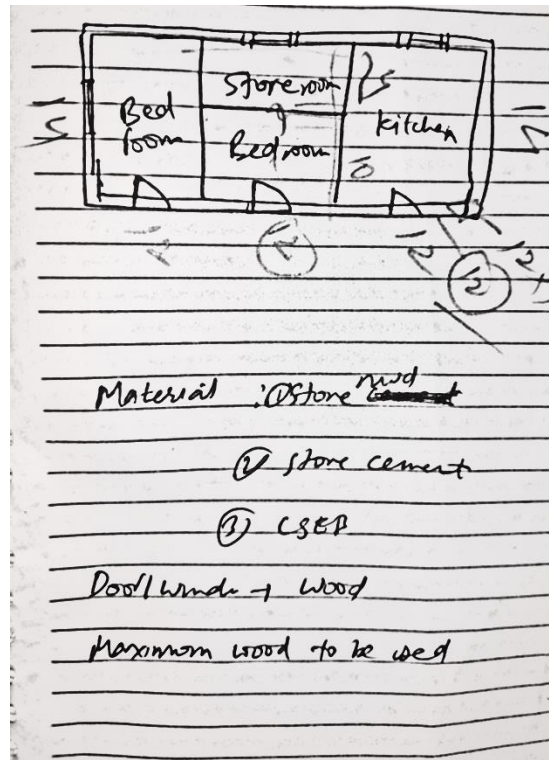 Store room
Bed
room
Bedroom
Kitchen
12
12
12
12
Material : ① Stone mud
② Stone cement
③ CSEB
Door/window → wood
Maximum wood to be used